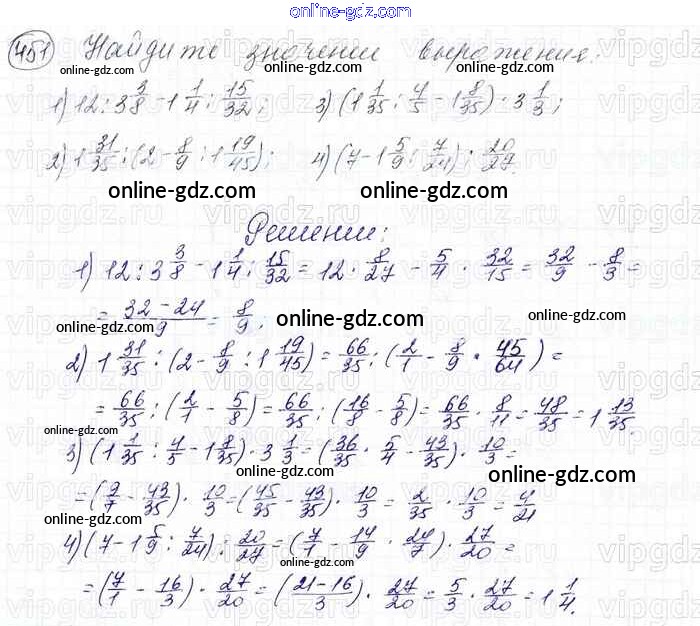 online-gdz.com
451 Найдите значении выражение:
online-gdz.com online-gdz.com online-gdz.com
1) 12 : 3 3/8 - 1 1/4 : 15/32; 3) (1 1/35 : 4/5 - 1 8/35) · 3 1/3;
2) 1 31/35 : (2 - 8/9 : 1 19/45); 4) (7 - 1 5/9 : 7/24) : 20/27.
online-gdz.com online-gdz.com
Решении:
1) 12 : 3 3/8 - 1 1/4 : 15/32 = 12 · 8/27 - 5/4 · 32/15 = 32/9 - 8/3 =
online-gdz.com online-gdz.com online-gdz.com
= 32-24/9 = 8/9.
online-gdz.com online-gdz.com
2) 1 31/35 : (2 - 8/9 : 1 19/45) = 66/35 : (2/1 - 8/9 · 45/64) =
= 66/35 : (2/1 - 5/8) = 66/35 : (16/8 - 5/8) = 66/35 · 8/11 = 48/35 = 1 13/35.
online-gdz.com
3) (1 1/35 : 4/5 - 1 8/35) · 3 1/3 = (36/35 · 5/4 - 43/35) · 10/3 =
online-gdz.com
= (9/7 - 43/35) · 10/3 = (45/35 - 43/35) · 10/3 = 2/35 · 10/3 = 4/21
online-gdz.com online-gdz.com
4) (7 - 1 5/9 : 7/24) : 20/27 = (7/1 - 14/9 · 24/7) · 27/20 =
online-gdz.com
= (7/1 - 16/3) · 27/20 = (21-16/3) · 27/20 = 5/3 · 27/20 = 1 1/4.
online-gdz.com online-gdz.com